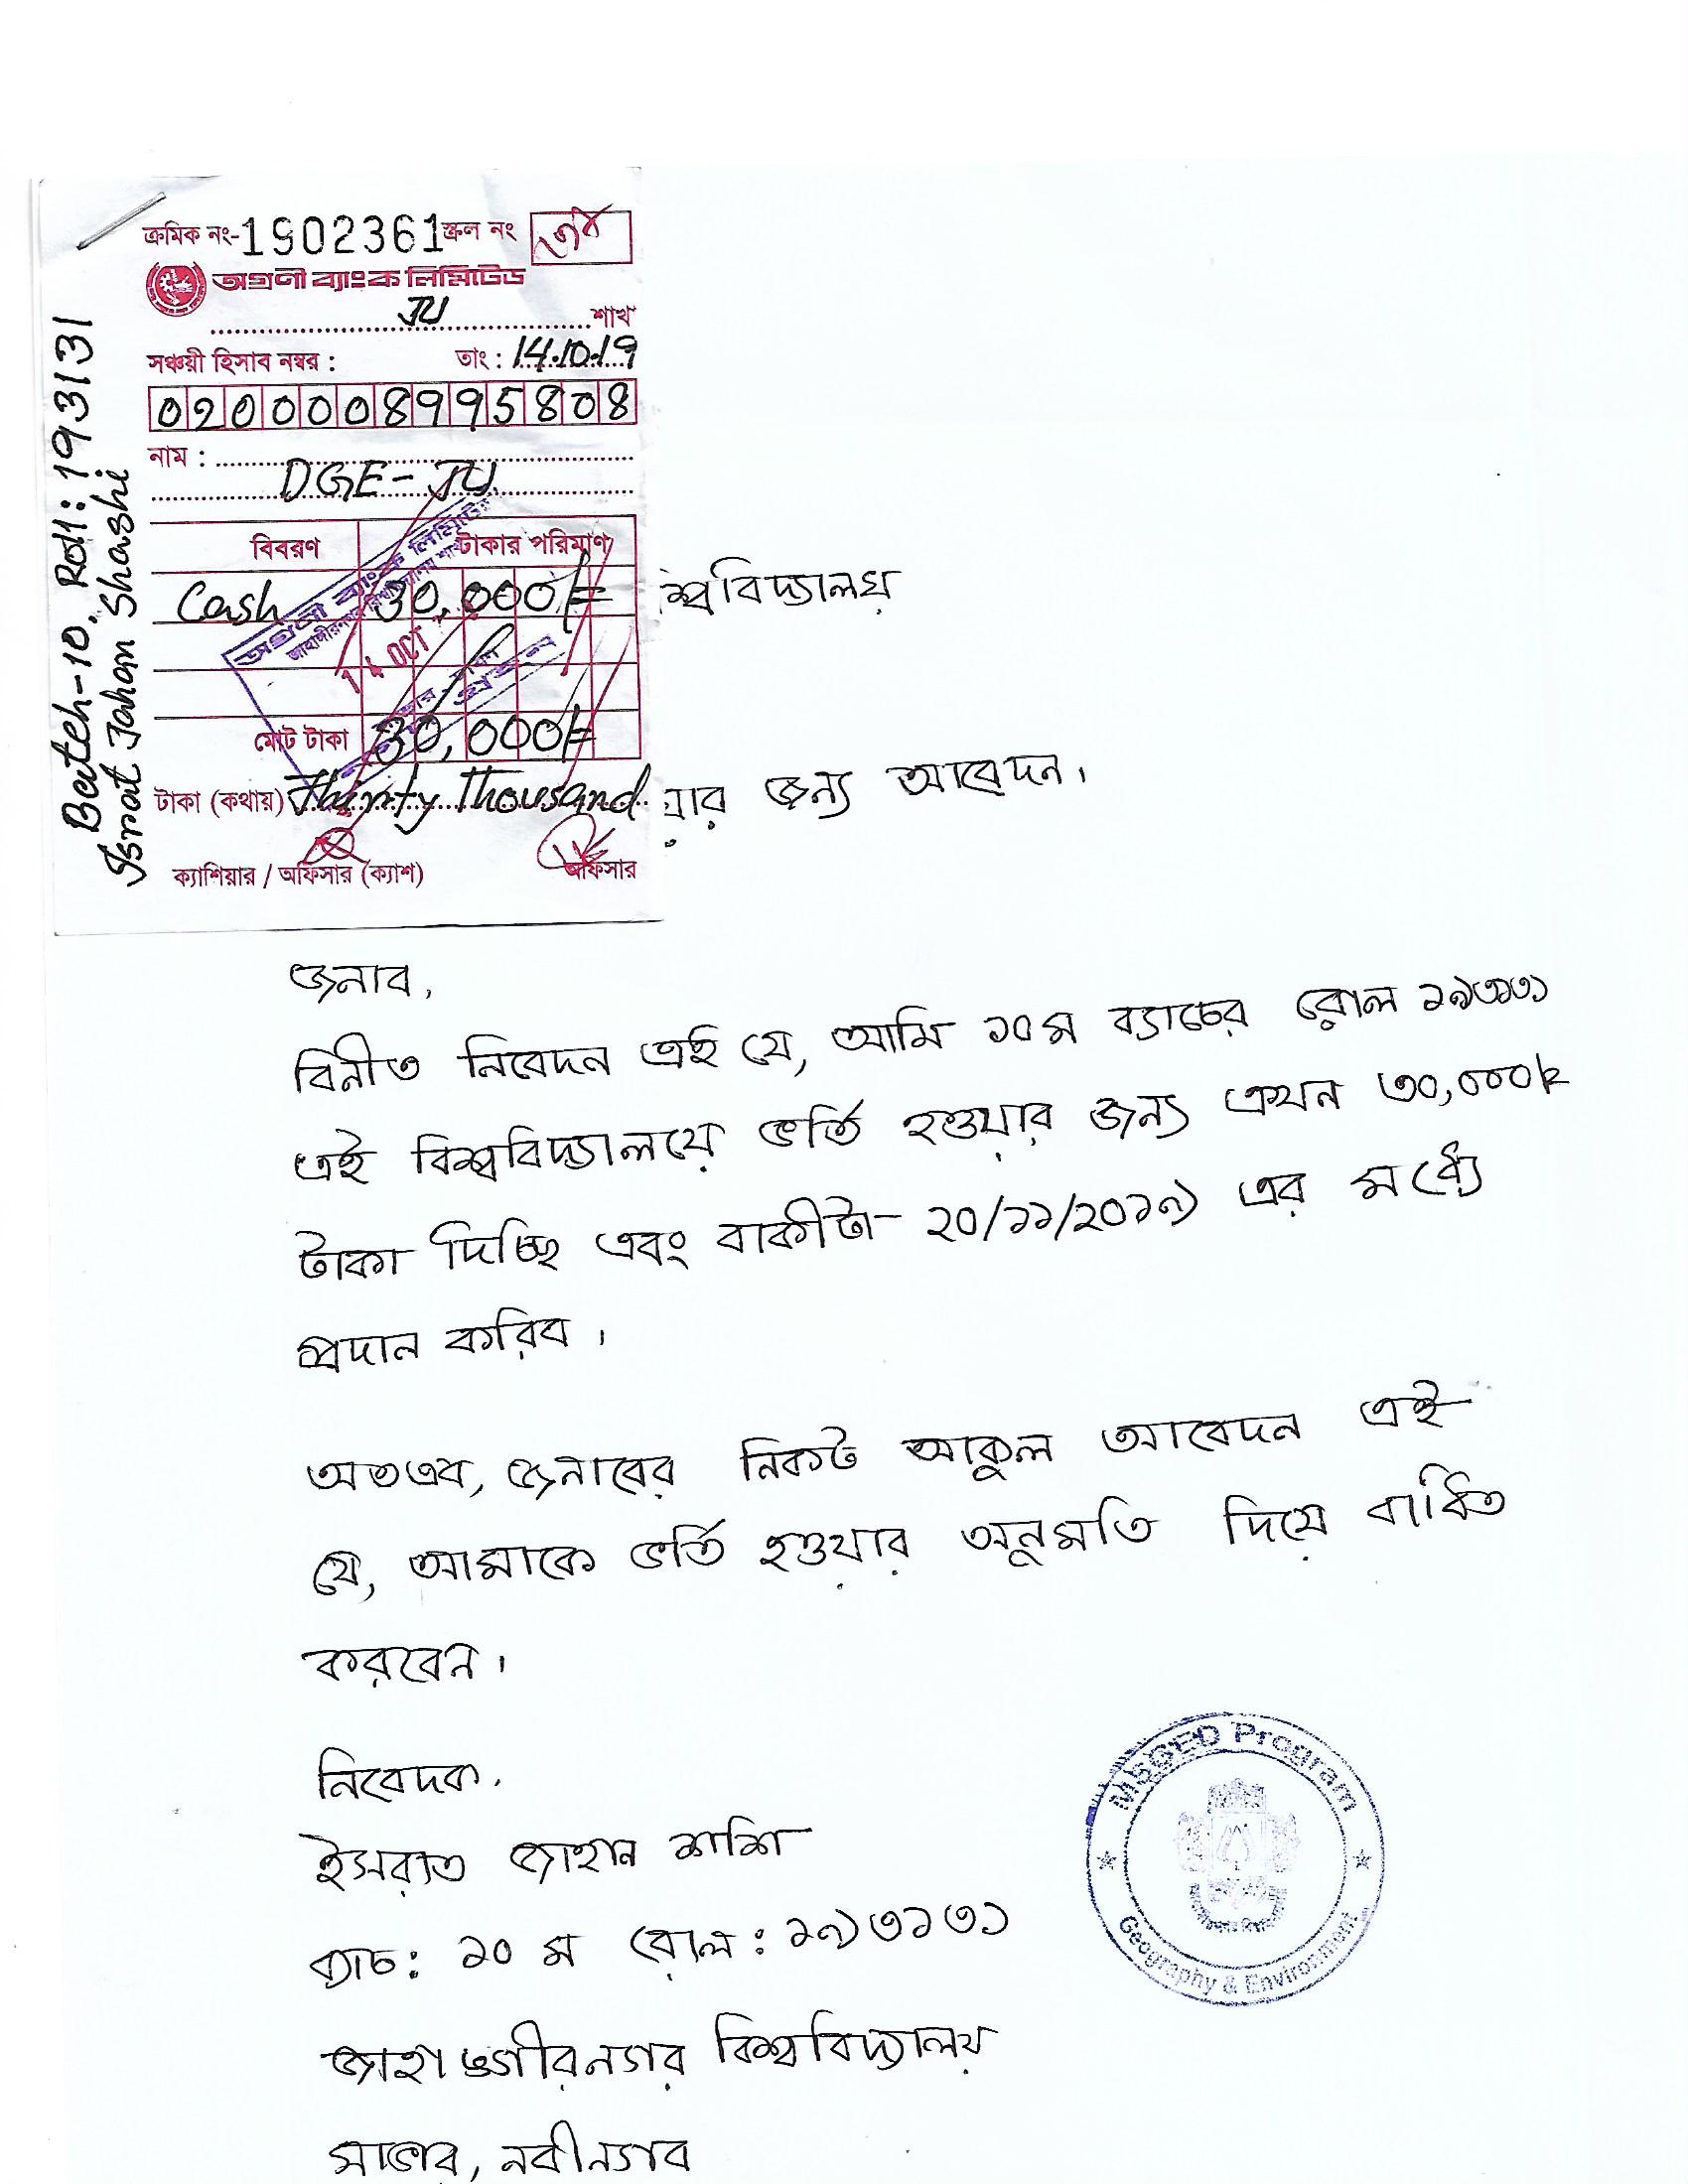 ক্রমিক নং-1902361 স্ক্রল নং
অগ্রণী ব্যাংক লিমিটেড
JU শাখ
সঞ্চয়ী হিসাব নম্বর : তাং : 14.10.19
0200008995808
নাম :
DGE-JU
বিবরণ টাকার পরিমাণ
Cash 30,000/=
অগ্রণী ব্যাংক লিমিটেড
14 OCT
মোট টাকা 30,000/=
টাকা (কথায়) Thirty Thousand
ক্যাশিয়ার / অফিসার (ক্যাশ) অফিসার
Batch-10, Roll: 193131
Israt Jahan Shashi
শ্ববিদ্যালয়
য়ার জন্য আবেদন।
জনাব,
বিনীত নিবেদন এই যে, আমি ১০ম ব্যাচের রোল ১৯৩১৩১
এই বিশ্ববিদ্যালয়ে ভর্তি হওয়ার জন্য এখন ৩০,০০০/=
টাকা দিচ্ছি এবং বাকীটা ২০/১১/২০১৯ এর মধ্যে
প্রদান করিব।
অতএব, জনাবের নিকট আকুল আবেদন এই
যে, আমাকে ভর্তি হওয়ার অনুমতি দিয়ে বাধিত
করবেন।
নিবেদক,
ইসরাত জাহান শাশি
ব্যাচ: ১০ ম রোল : ১৯৩১৩১
জাহাঙ্গীরনগর বিশ্ববিদ্যালয়
সাভার, নবীনগর
MSGED Program
Geography & Environment